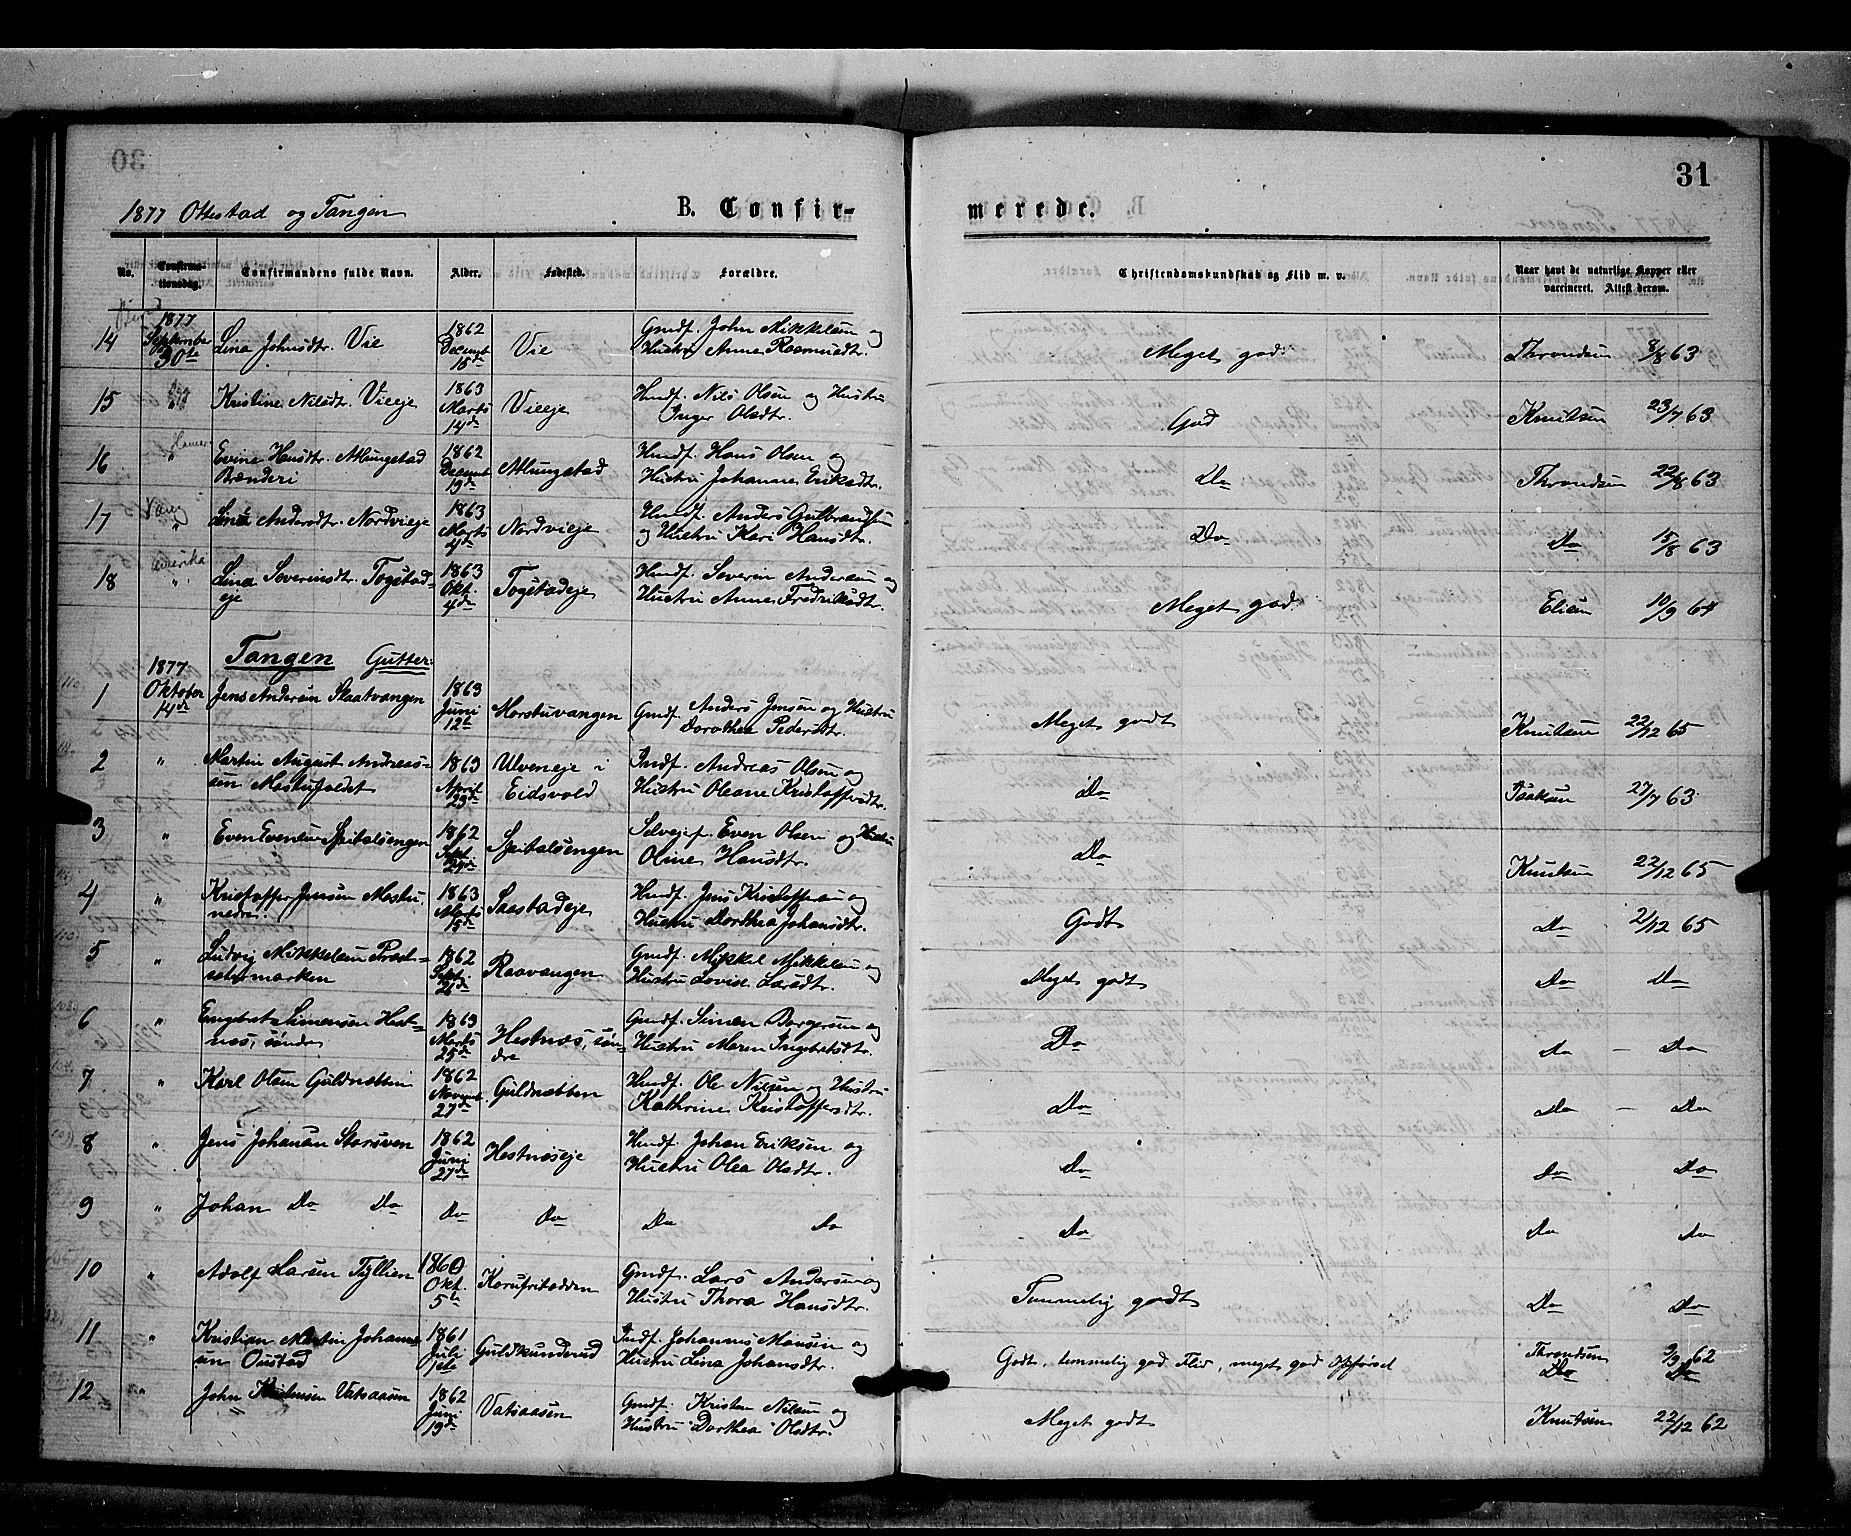 30
31
1877 Ottestad og Tangen
B. Confir-
merede.
No.
Confirma-
tionsdag.
Confirmandens fulde Navn.
Alder.
Fødested.
Forældre.
Christendomskundskab og Flid m. v.
Naar havt de naturlige Kopper eller
vaccineret. Attest derom.
14 1877 September 30te Lina Johnsdtr. Vie 1862 Decemb. 15de Vie Gmdf. John Mikkelsen og
Hustru Anne Rasmusdtr. Meget god: Throndsen 8/8 63
15 " Kristine Nilsdtr. Vieeje 1863 Marts 14de Vieeje Hmdf. Nils Olsen og Hustru
Inger Olsdtr. God Knutsen 23/7 63
16 " Evine Hansdtr. Atlungstad
Brænderi 1862 Decemb. 19de Atlungstad Hmdf. Hans Olsen og
Hustru Johanne Eriksdtr. Do Throndsen 22/8 63
17 Vang " Lina Andersdtr. Nordvieeje 1863 Marts 4de Nordvieeje Hmdf. Anders Gulbrandsen
og Hustru Kari Hansdtr. Do. Do 15/8 63
18 Amerika " Lina Severinsdtr. Togstad-
eje 1863 Okt. 4de Togstadeje Hmdf. Severin Andersen og
Hustru Anne Fredriksdtr. Meget god. Eliesen 10/9 64
Tangen Gutter:
1 1877 Oktober 14de Jens Andersen Skaatvangen 1863 Juni 12te Horstuvangen Gmdf. Anders Jensen og Hustru
Dorothea Pedersdtr. Meget godt Knutsen 22/12 65
2 " Martin August Andreas-
sen Mostufaldet 1863 April 23de Ulveneje i
Eidsvold Indf. Andreas Olsen og
Hustru Oleane Kristoffersdtr. Do Isaksen 27/7 63
3 " Even Evensen Spitalsengen 1862 Sept. Spitalsengen Selvejerf. Even Olsen og Hustru
Oline Hansdtr. Do Knutsen 22/12 65
4 " Kristoffer Jensen Mostu,
nedre. 1863 Marts 15de Saastadeje Hmdf. Jens Kristoffersen og
Hustru Dorthea Johansdtr. Godt Do 21/12 65
5 " Ludvig Mikkelsen Præst-
sætermarken 1862 Sept. 26de Raavangen Gmdf. Mikkel Mikkelsen og
Hustru Lovise Larsdtr. Meget godt Do Do
6 " Engebret Simensen Hest-
næs, søndre 1863 Marts 25de Hestnæs, søn-
dre Gmdf. Simen Borgersen og
Hustru Maren Ingebretsdtr. Do Do — Do
7 " Karl Olsen Guldnæbben 1862 Novemb. 27de Guldnæbben Hmdf. Ole Nilsen og Hustru
Kathrine Kristoffersdtr. Do Do — Do
8 " Jens Johansen Storsveen 1862 Juni 27de Hestnæseje Hmdf. Johan Eriksen og
Hustru Olea Olsdtr. Do Do Do
9 " Johan Do Do Do Do Do Do Do Do Do
10 " Adolf Larsen Tyllien 1860 Okt. 5te Korufritodden Gmdf. Lars Andersen og
Hustru Thora Hansdtr. Temmelig godt Do Do
11 " Kristian Martin Johannes-
sen Oustad 1861 Juli 1ste Guldkunderud Indf. Johannes Monsen og
Hustru Lina Johansdtr. Godt, temmelig god Flid, meget god Opførsel Throndsen 9/9 62
Do Do
12 " John Kristensen Vatsaasen 1862 Juni 19de Vatsaasen Gmdf. Kristen Nilsen og
Hustru Dorthea Olsdtr. Meget godt Knutsen 22/12 62